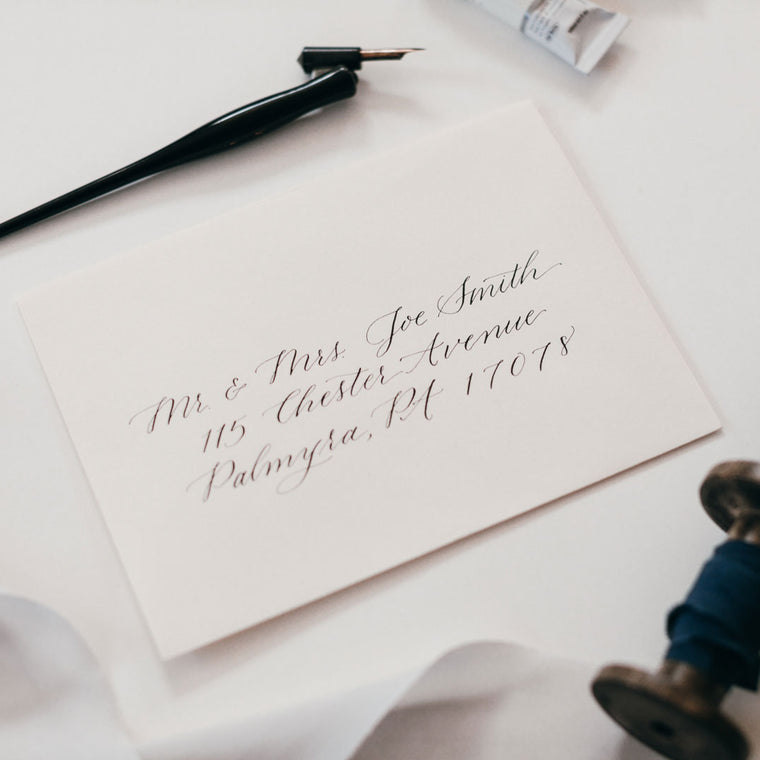 Mr. & Mrs. Joe Smith
115 Chester Avenue
Palmyra, PA 17078